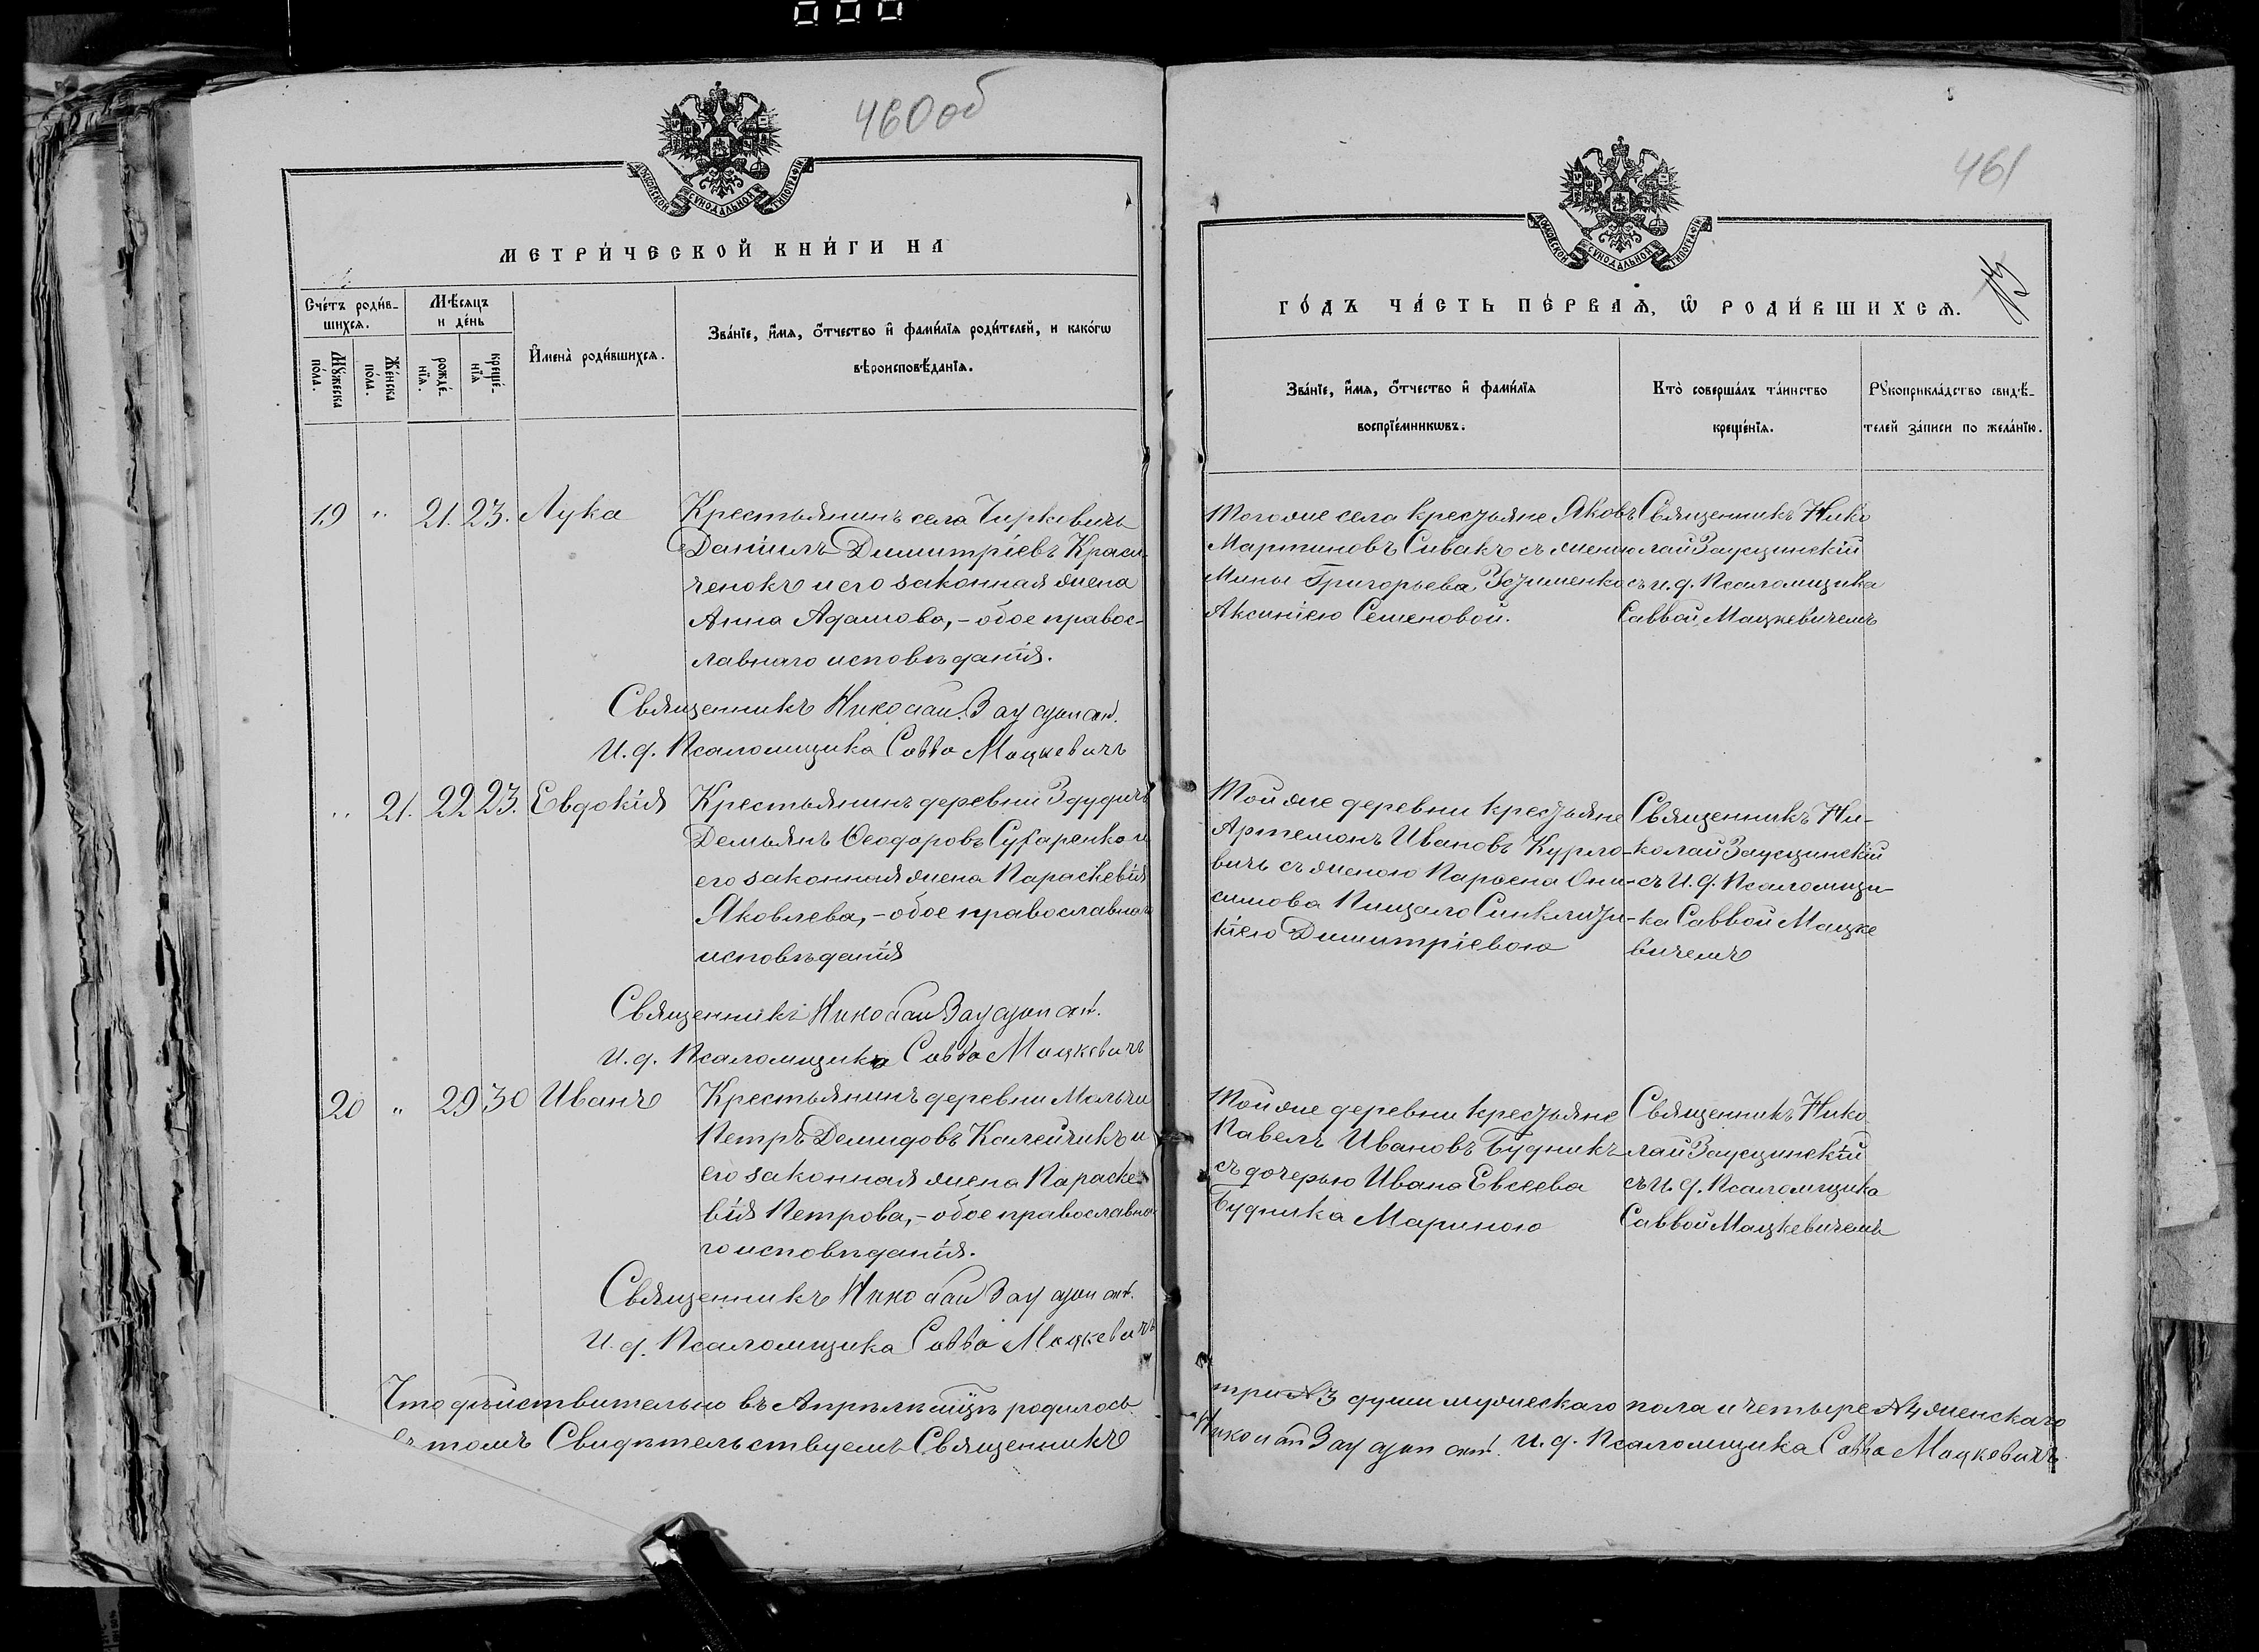 460 об
МОСКОВСКОЙ СѴНОДАЛЬНОЙ ТИПОГРАФІИ
МЕТРИ́ЧЕСКОЙ КНИ́ГИ НА
Сче́тъ роди́в-
шихся.
Мѣ́сяцъ
и де́нь
Му́жеска
по́ла.
Же́нска
по́ла.
рожде́-
нїя.
креще́-
нїя
И҆мена̀ роди́вшихся.
Зва́нїе, и҆́мя, ѻ҆́тчество и҆ фами́лїя роди́телей, и како́гѡ
вѣроисповѣ́данїя.
19 " 21. 23. Лука
Крестьянинъ села Чирковичъ
Даніилъ Димитріевъ Краси-
ченокъ и его законная жена
Анна Адамова, - обое правос-
лавнаго исповѣданія.
Священникъ Николай
И. д. Псаломщика Савва Мацкевичъ
" 21. 22 23. Евдокія
Крестьянинъ деревни Здудичъ
Демьянъ Ѳеодоровъ Сухаренко и
его законная жена Параскевія
Яковлева, - обое православнаго
исповѣданія
Священникъ Николай
И. д. Псаломщика Савва Мацкевичъ
20 " 29 30 Иванъ
Крестьянинъ деревни Мольчи
Петръ Демидовъ Калейчикъ и
его законная жена Параске-
вія Петрова, - обое православна-
го исповѣданія.
Священникъ Николай
И. д. Псаломщика Савва Мацкевичъ
Что дѣйствительно въ Апрѣлѣ мцѣ родилось
въ томъ Свидѣтельствуемъ Священникъ
461
МОСКОВСКОЙ СѴНОДАЛЬНОЙ ТИПОГРАФІИ
ГО́ДЪ ЧА́СТЬ ПЕ́РВАЯ, Ѽ РОДИ́ВШИХСЯ.
Зва́нїе, и҆́мя, ѻ҆́тчество и҆ фами́лїя
воспрїе́мникѡвъ.
Кто̀ соверша́лъ та́инство
креще́нїя.
Рꙋкоприкла́дство свидѣ́-
телей за́писи по жела́нїю.
Того же села крестьяне Яковъ
Мартиновъ Сивакъ съ женою
Мины Григорьева Устименко
Аксиніею Семеновой.
Священникъ Нико
лай Заусцинскій
съ и. д. Псаломщика
Саввой Мацкевичемъ
Той же деревни крестьяне
Артемонъ Ивановъ Курло-
вичъ съ женою Парѳена Они-
симова Пищало Синклити-
кіею Димитріевою
Священникъ Ни-
колай Заусцинскій
съ И. д. Псаломщи-
ка Саввой Мацке
вичемъ
Той же деревни крестьяне
Павелъ Ивановъ Будникъ
съ дочерью Ивана Евсеева
Будника Мариною
Священникъ Нико
лай Заусцинскій
съ И. д. Псаломщика
Саввой Мацкевичемъ
три №3 души мужескаго пола и четыре №4 женскаго
Николай И. д. Псаломщика Савва Мацкевичъ